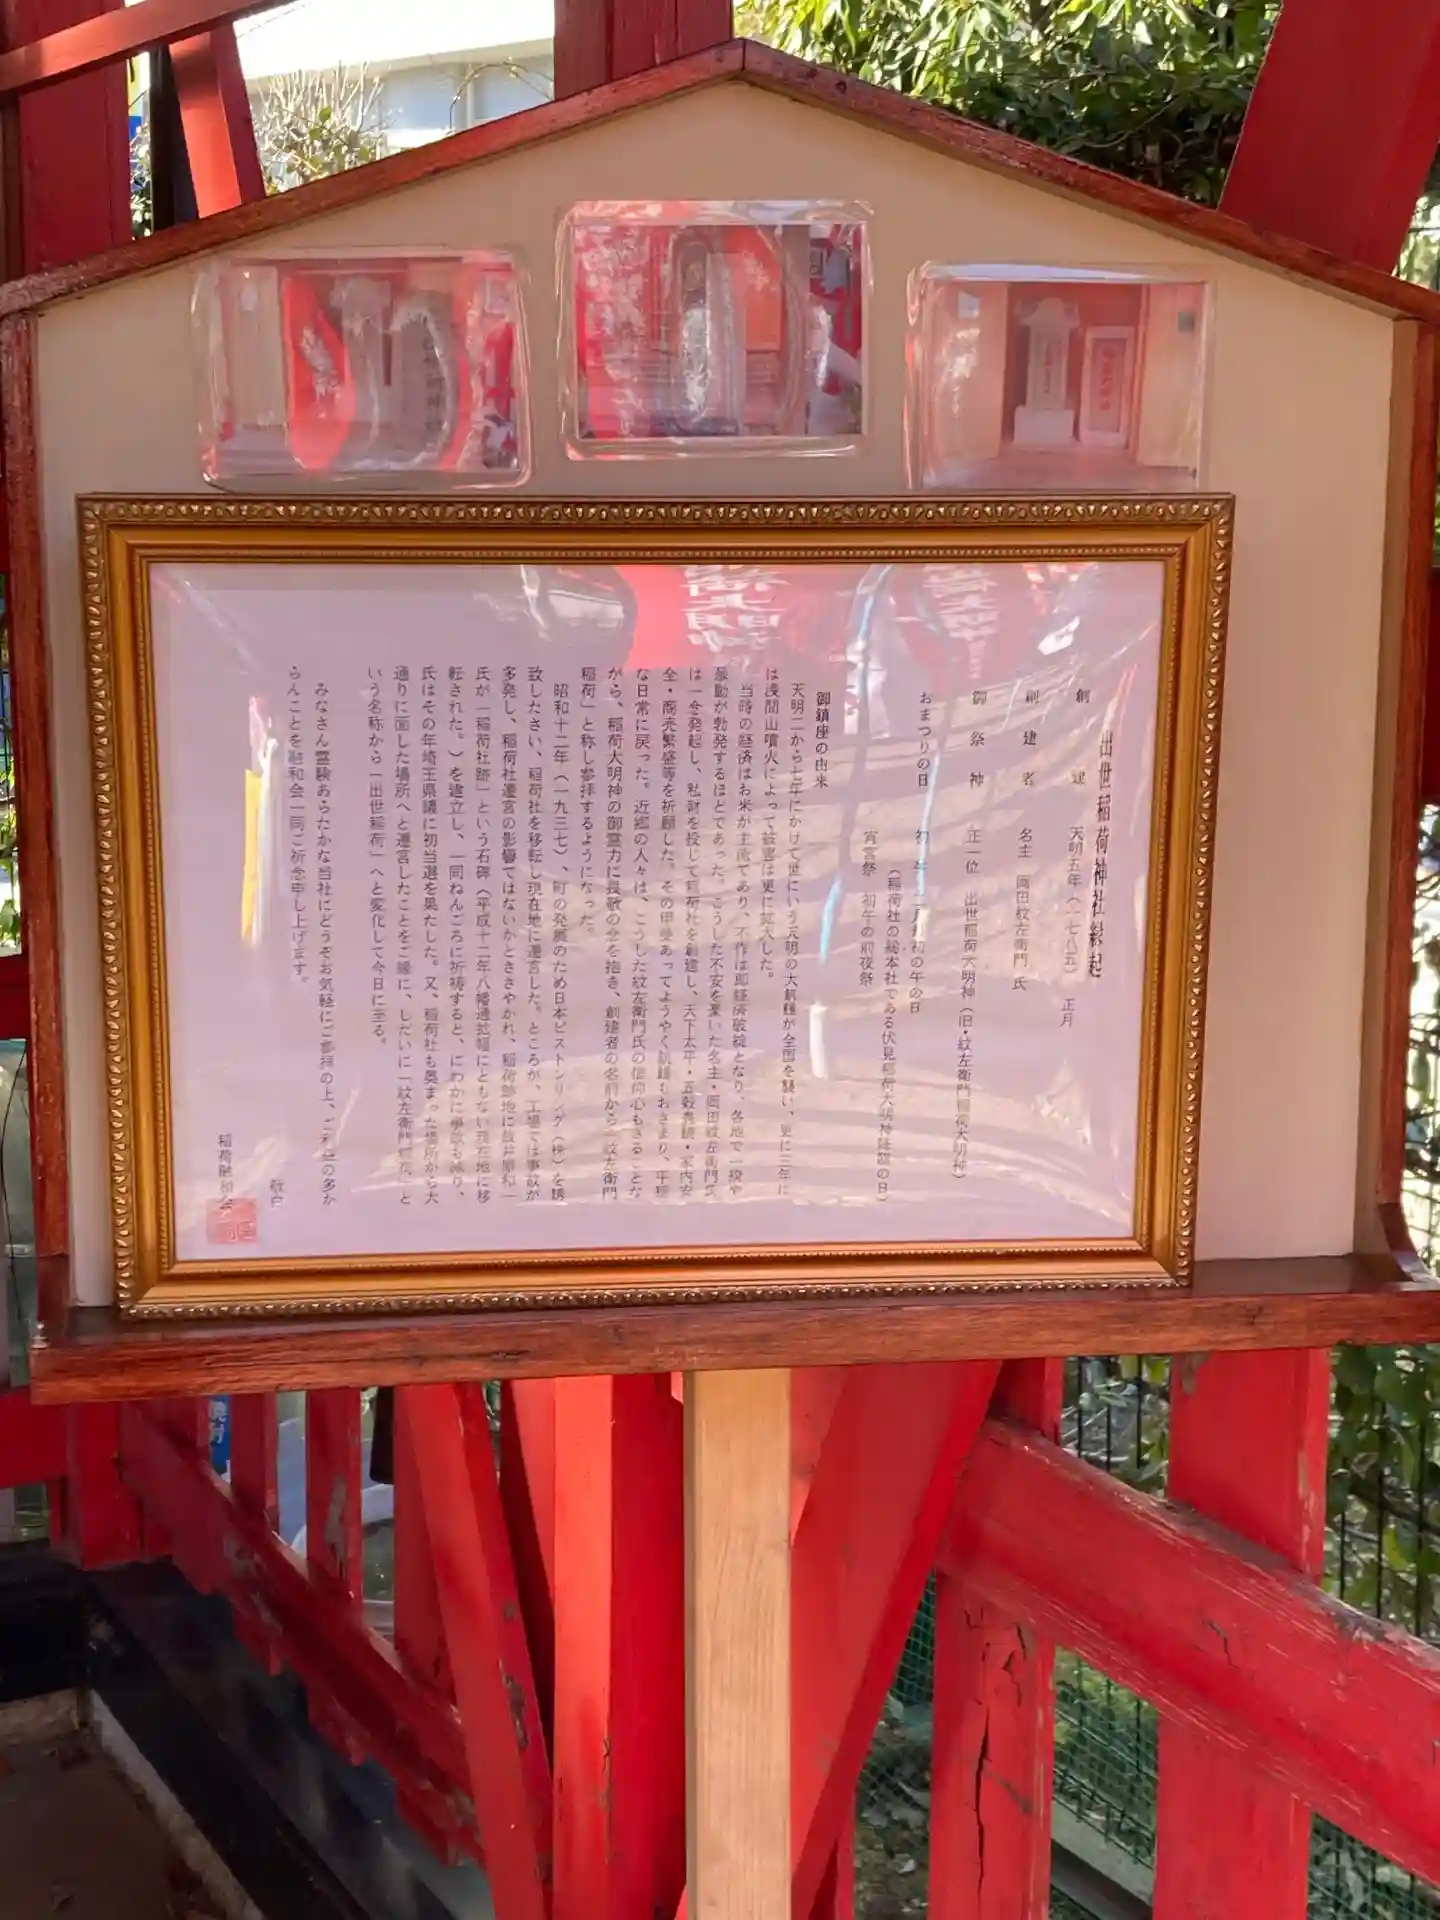 出世稲荷神社縁起
創建　天明五年（一七八五）　正月
創建者　名主　岡田紋左衛門　氏
御祭神　正一位　出世稲荷大明神（旧・紋左衛門稲荷大明神）
おまつりの日　初　午　二月　初の午の日
（稲荷社の総本社である伏見稲荷大明神降臨の日）
宵宮祭　初午の前夜祭
御鎮座の由来
天明二から七年にかけて世にいう天明の大飢饉が全国を襲い、更に三年に
は浅間山噴火によって被害は更に拡大した。
当時の経済はお米が主流であり、不作は即経済破綻となり、各地で一揆や
暴動が勃発するほどであった。こうした不安を憂いた名主・岡田紋左衛門氏
は一念発起し、私財を投じて稲荷社を創建し、天下太平・五穀豊穣・家内安
全・商売繁盛等を祈願した。その甲斐あってようやく飢饉もおさまり、平穏
な日常に戻った。近郷の人々は、こうした紋左衛門氏の信仰心もさることな
がら、稲荷大明神の御霊力に畏敬の念を抱き、創建者の名前から「紋左衛門
稲荷」と称し参拝するようになった。
昭和十二年（一九三七）、町の発展のため日本ピストンリング（株）を誘
致したさい、稲荷社を移転し現在地に遷宮した。ところが、工場では事故が
多発し、稲荷社遷宮の影響ではないかとささやかれ、稲荷跡地に
氏が「稲荷社跡」という石碑（平成十二年八幡通拡幅にともない現在地に移
転された。）を建立し、一同ねんごろに祈祷すると、にわかに事故も減り、
氏はその年埼玉県議に初当選を果たした。又、稲荷社も奥まった場所から大
通りに面した場所へと遷宮したことをご縁に、しだいに「紋左衛門稲荷」と
いう名称から「出世稲荷」へと変化して今日に至る。
みなさん霊験あらたかな当社にどうぞお気軽にご参拝の上、ご利益の多か
らんことを融和会一同ご祈念申し上げます。
敬白
稲荷融和会